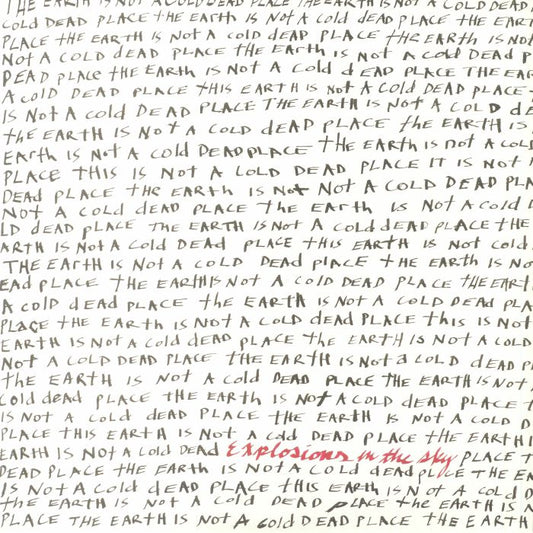 THE EARTH IS NOT A COLD DEAD PLACE THE EARTH IS NOT A COLD DEAD
COLD DEAD PLACE THE EARTH IS NOT A COLD dEAD PLACE THE EART
PLACE THE EARTH IS NOT A COLD DEAD PLACE THE EARTH IS NOT
NOT A COLD DEAD PLACE THE EARTH IS NOT A COLD DEAD P
DEAD PLACE THE EARTH IS NOT A COLD dEAD PLACE THE EAR
A COLD DEAD PLACE THIS EARTH IS NOT A COLD DEAD PLACE
IS NOT A COLD DEAD PLACE THE EARTH IS NOT A COLD dE
THE EARTH IS NOT A COLD dEAD PLACE THE EARTH IS
EARTH IS NOT A COLD DEAD PLACE THE EARTH IS NOT A COL
PLACE THIS IS NOT A COLD DEAD PLACE IT IS NOT
DEAD PLACE THE EARTH IS NOT NOT A COLD DEAD PLA
NOT A COLD dEAD PLACE THE EARTH IS NOT A COLD
LD dEAD PLACE THE EARTH IS NOT A COLD dEAD PLACE THE
ARTH IS NOT A COLD DEAD PLACE THIS EARTH IS NOT COLD
THE EARTH IS NOT A COLD DEAD PLACE THE EARTH IS NO
EAD PLACE THE EARTH IS NOT A COLD DEAD PLACE THE EART
A COLD dEAD PLACE THE EARTH IS NOT A COLD DEAD PLA
PLACE THE EARTH IS NOT A COLD dEAD PLACE THIS IS NOT
EARTH IS NOT A COLD DEAD PLACE THE EARTH IS NOT A COLD
NOT A COLD DEAD PLACE THE EARTH IS NOT A COLD DEAD P
THE EARTH IS NOT A COLD DEAD PLACE THE EARTH IS NOT
COLD DEAD PLACE THE EARTH IS NOT A COLD DEAD PLACE T
IS NOT A COLD DEAD PLACE THE EARTH IS NOT A COLD D
PLACE THIS EARTH IS NOT A COLD DEAD PLACE THE EARTH I
EARTH IS NOT A COLD DEAD Explosions in the sky PLACE T
DEAD PLACE THE EARTH IS NOT A COLD dEAD PLACE THE EA
IS NOT A COLD DEAD PLACE THIS EARTH IS NOT A COLD D
THE EARTH IS NOT A COLD DEAD PLACE THE EARTH IS N
PLACE THE EARTH IS NOT A COLD DEAD PLACE THE EARTH